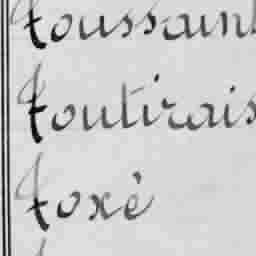 Toussaint
Toutirais
Toxé